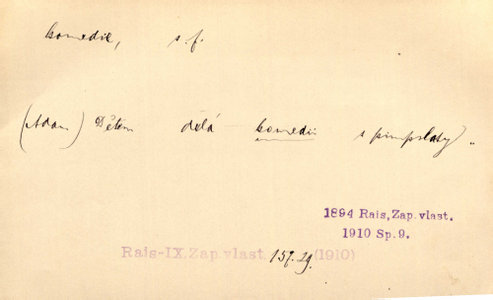 komedie, s. f.
(Adam) Dětem dělá komedii s pimprlaty.
1894 Rais, Zap. vlast.
1910 Sp. 9.
Rais-IX, Zap. vlast. 157.29. (1910)